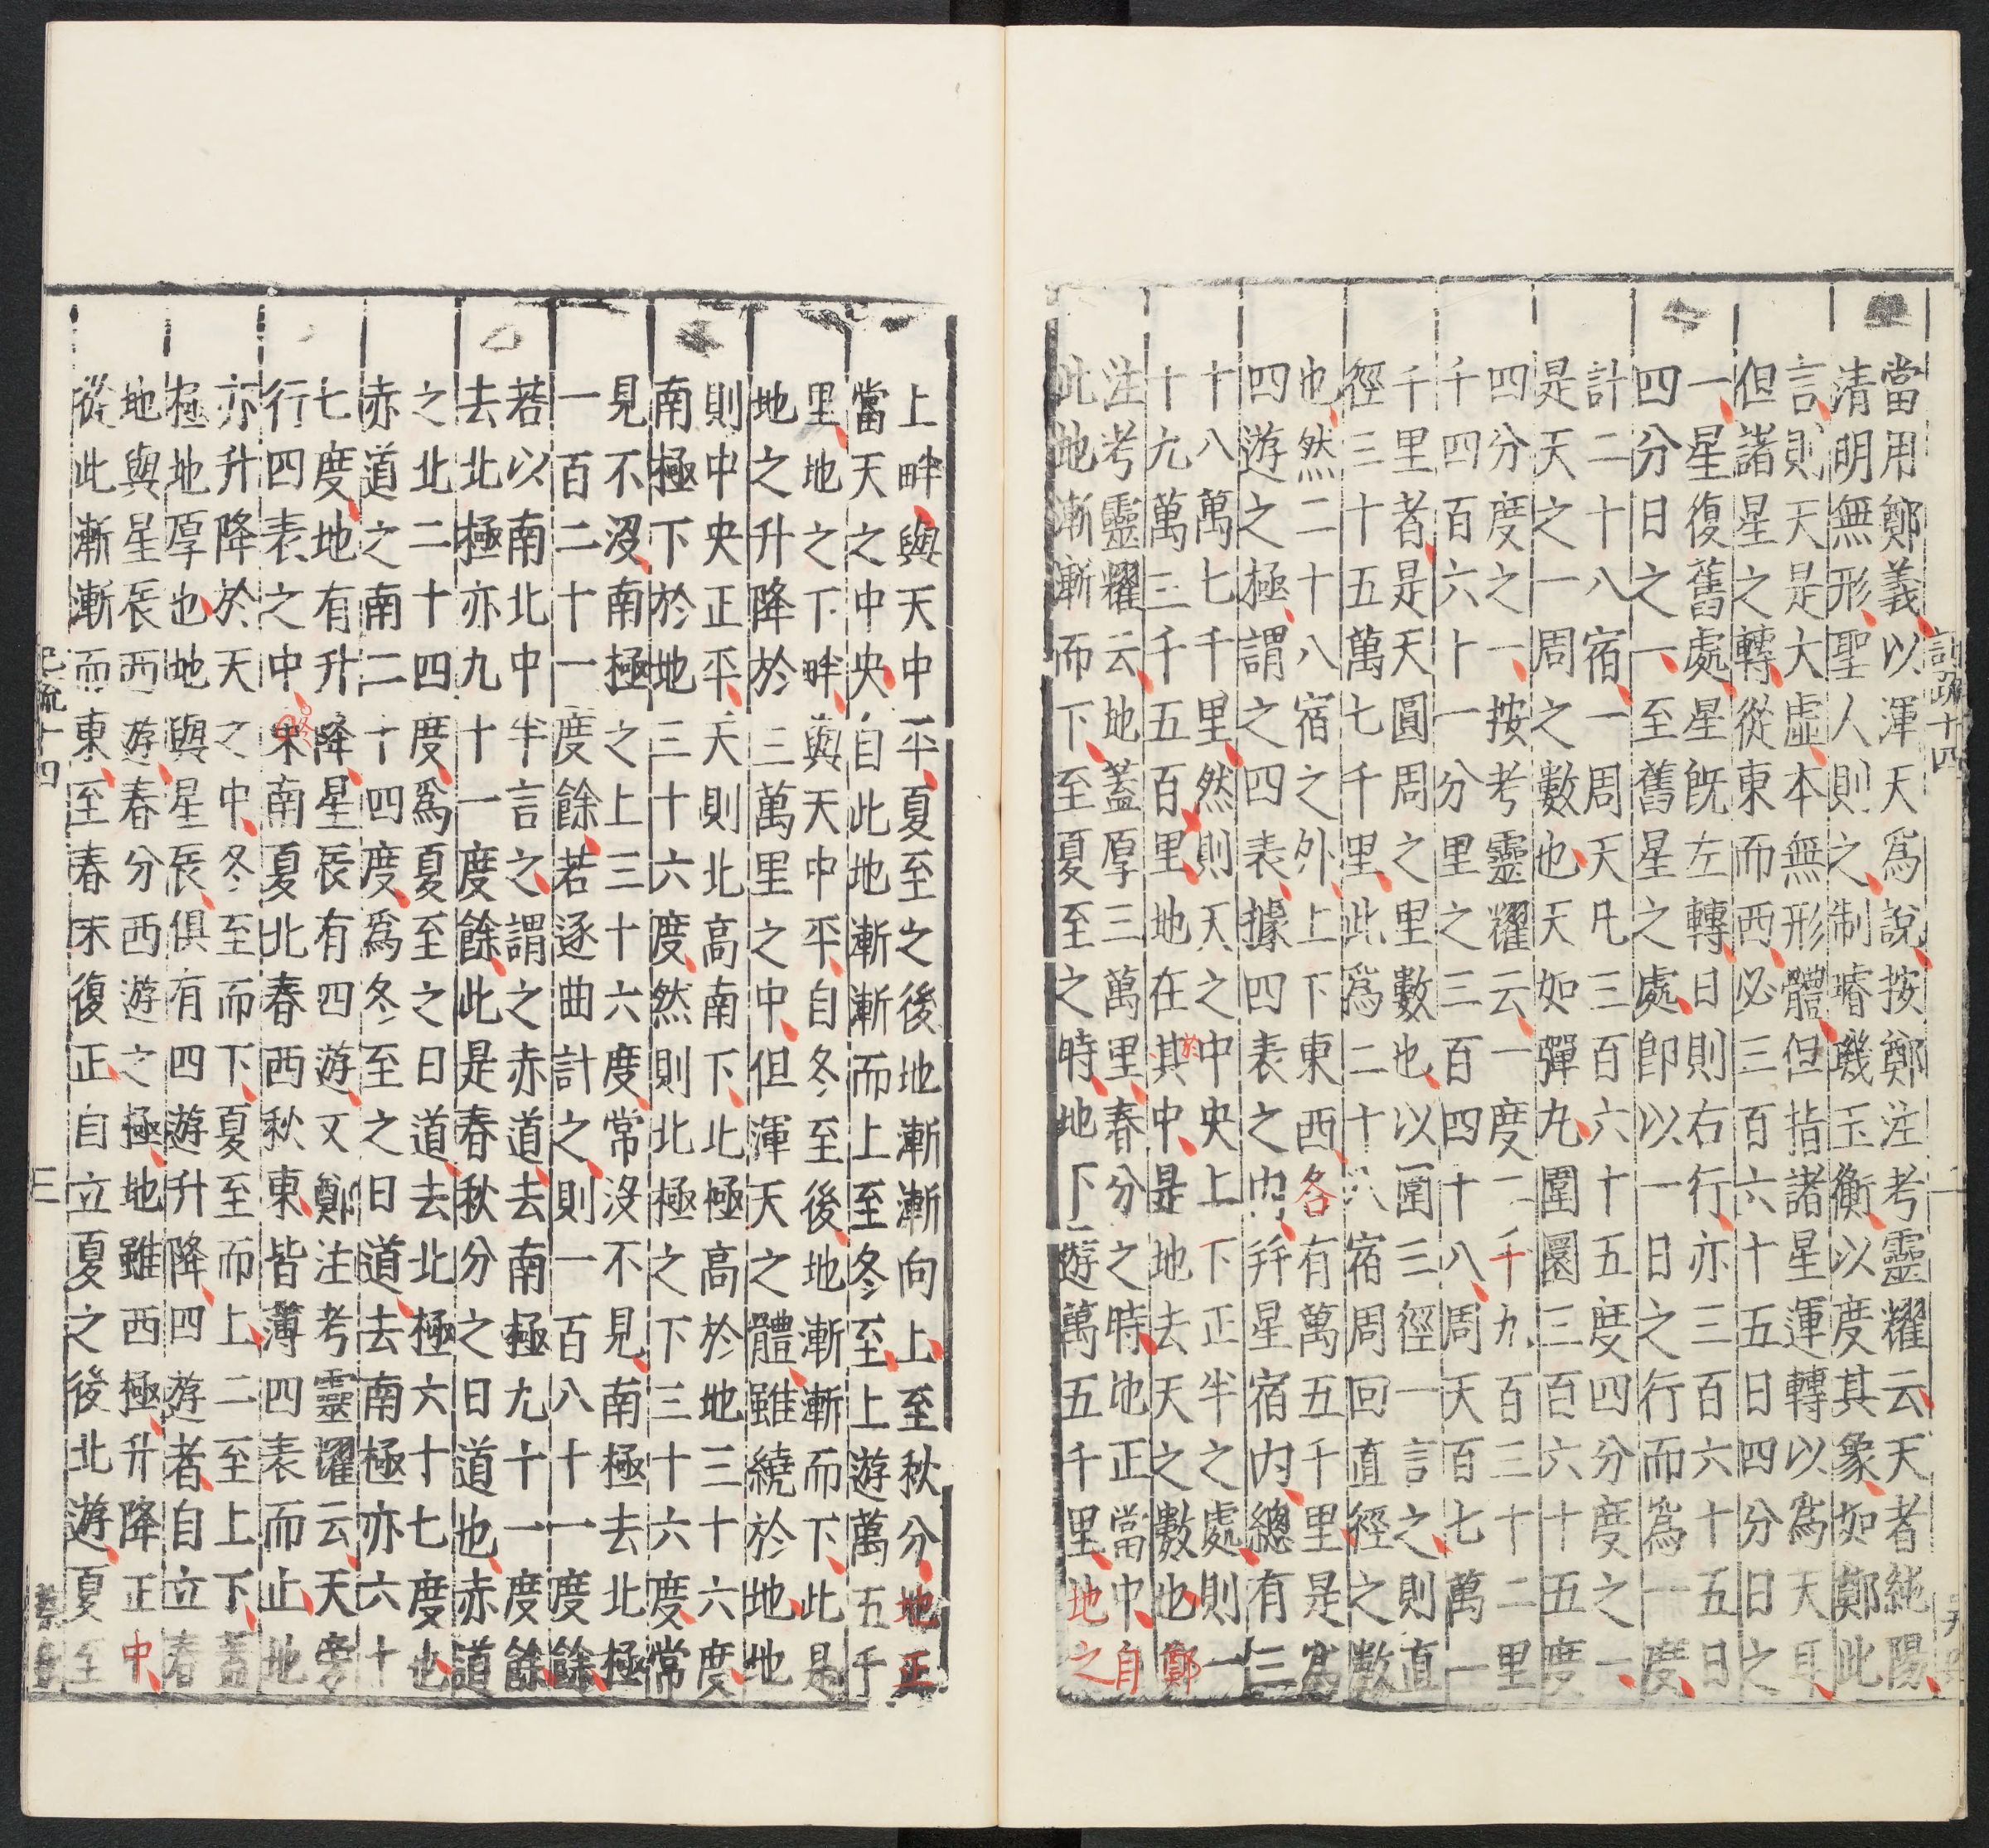 記疏十四
當用鄭義以渾天爲說按鄭注考靈耀云天者純陽
清明無形聖人則之制璿璣玉衡以度其象如鄭此
言則天是大虛本無形體但指諸星運轉以爲天耳
但諸星之轉從東而西必三百六十五日四分日之
一星復舊處星旣左轉日則右行亦三百六十五日
四分日之一至舊星之處卽以一日之行而爲一度
計二十八宿一周天凡三百六十五度四分度之一
是天之一周之數也天如彈丸圍圜三百六十五度
四分度之一按考靈耀云一度二千九百三十二里
千四百六十一分里之三百四十八周天百七萬一
千里者是天圓周之里數也以圍三徑一言之則直
徑三十五萬七千里此爲二十八宿周回直徑之數
也然二十八宿之外上下東西各有萬五千里是爲
四遊之極謂之四表據四表之內并星宿內總有三
十八萬七千里然則天之中央上下正半之處則一
十九萬三千五百里地在於其中是地去天之數也鄭
注考靈耀云地蓋厚三萬里春分之時地正當中自
此地漸漸而下至夏至之時地下遊萬五千里地之
上畔與天中平夏至之後地漸漸向上至秋分地正
當天之中央自此地漸漸而上至冬至上遊萬五千
里地之下畔與天中平自冬至後地漸漸而下此是
地之升降於三萬里之中但渾天之體雖繞於地地
則中央正平天則北高南下北極高於地三十六度
南極下於地三十六度然則北極之下三十六度常
見不沒南極之上三十六度常沒不見南極去北極
一百二十一度餘若逐曲計之則一百八十一度餘
若以南北中半言之謂之赤道去南極九十一度餘
去北極亦九十一度餘此是春秋分之日道也赤道
之北二十四度爲夏至之日道去北極六十七度也
赤道之南二十四度爲冬至之日道去南極亦六十
七度地有升降星辰有四游又鄭注考靈耀云天旁
行四表之中冬南夏北春西秋東皆薄四表而止地
亦升降於天之中冬至而下夏至而上二至上下蓋
極地厚也地與星辰俱有四遊升降四遊者自立春
地與星辰西遊春分西遊之極地雖西極升降正中
從此漸漸而東至春末復正自立夏之後北遊夏至
記疏十四
三